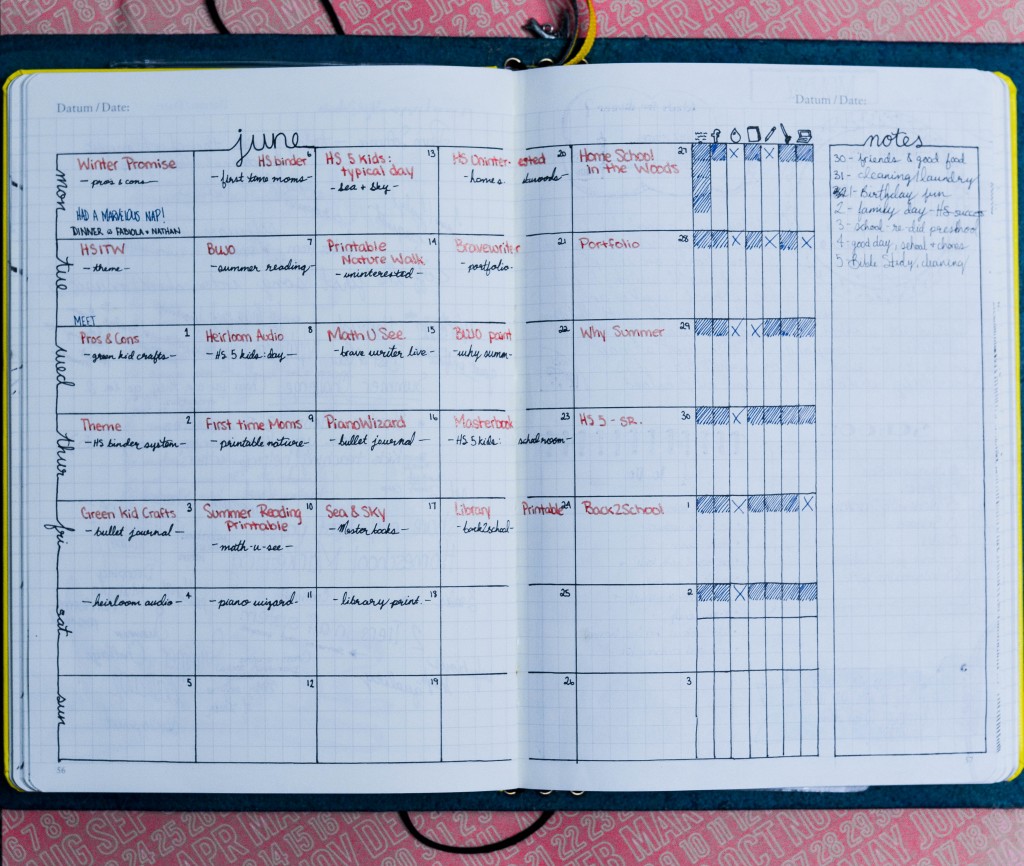 Datum / Date:
Datum / Date:
june
notes
mon
Winter Promise
- pros & cons -
HAD A MARVELOUS NAP!
DINNER w FABIOLA + NATHAN
HS binder 6
- first time moms -
HS 5 kids: 13
typical day
- sea + sky -
HS Uninterested 20
- homes. in the woods -
Home School 27
in the Woods
tue
HSITW
- theme -
MEET
BWO 7
- summer reading -
Printable 14
Nature Walk
- uninterested -
Bravewriter 21
- portfolio -
Portfolio 28
wed
Pros & Cons 1
- green kid crafts -
Heirloom Audio 8
- HS 5 kids: day -
Math U See 15
- brave writer live -
BWO 22
- why summer -
Why Summer 29
thur
Theme 2
- HS binder system -
First time Moms 9
- printable nature -
Piano Wizard 16
- bullet journal -
Masterbook 23
- HS 5 kids: schoolroom -
HS 5 - SR. 30
fri
Green Kid Crafts 3
- bullet journal -
Summer Reading 10
Printable
- math-u-see -
Sea & Sky 17
- Master books -
Library Printable 24
- back2school -
Back2School 1
sat
- heirloom audio - 4
- piano wizard - 11
- library print. - 18
25
2
sun
5
12
19
26
3
30 - friends & good food
31 - cleaning/laundry
1 - Birthday fun
2 - family day - HS success
3 - school - re-did preschool
4 - good day, school + chores
5 Bible Study, cleaning
6
56
57